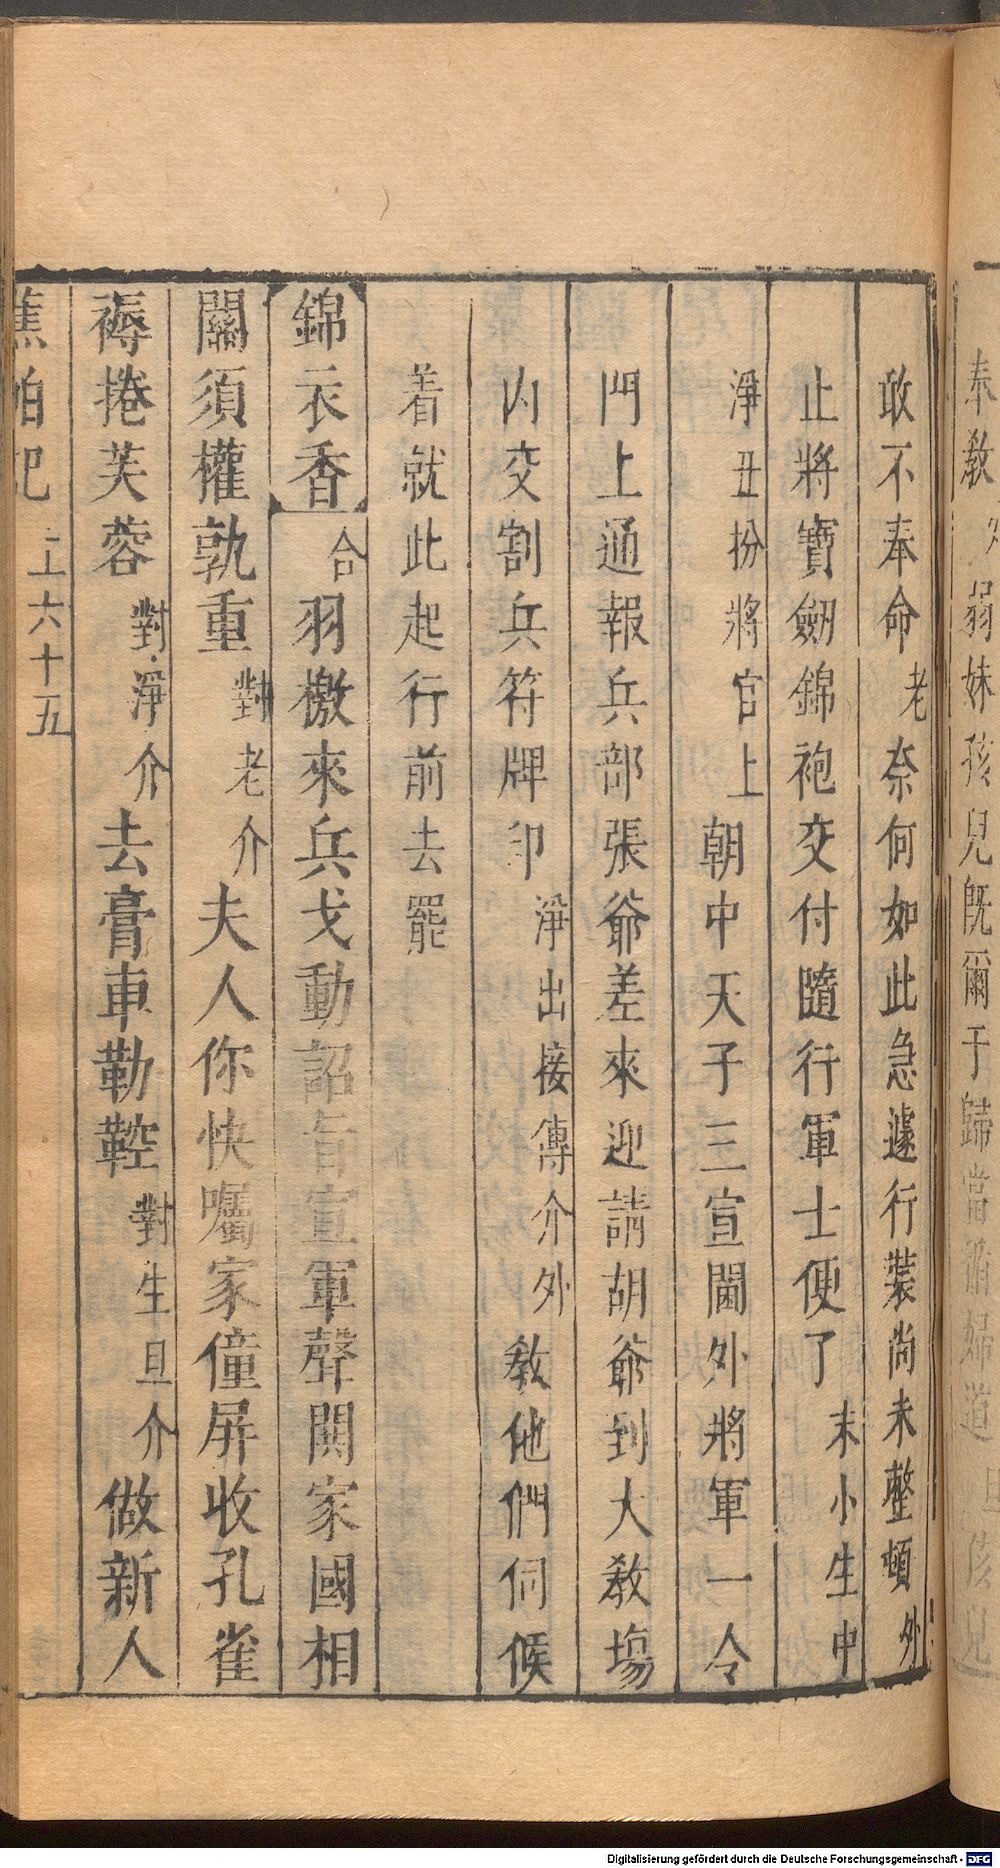 奉教 弱妹孩兒旣爾于歸當 婦道 旦 孩兒
敢不奉命老奈何如此急遽行裝尚未整頓外
止將寶劒錦袍交付隨行軍士便了末小生中
淨丑扮將官上朝中天子三宣閫外將軍一令
門上通報兵部張爺差來迎請胡爺到大敎塲
内交割兵符牌印淨出接傳介外敎他們伺候
着就此起行前去罷
錦衣香 合羽檄來兵戈動詔旨宣軍聲鬨家國相
關須權孰重對老介夫人你快囑家僮屏收孔雀
褥捲芙蓉對淨介去膏車勒鞚對生旦介做新人
蕉帕記 上六十五
Digitalisierung gefördert durch die Deutsche Forschungsgemeinschaft - DFG